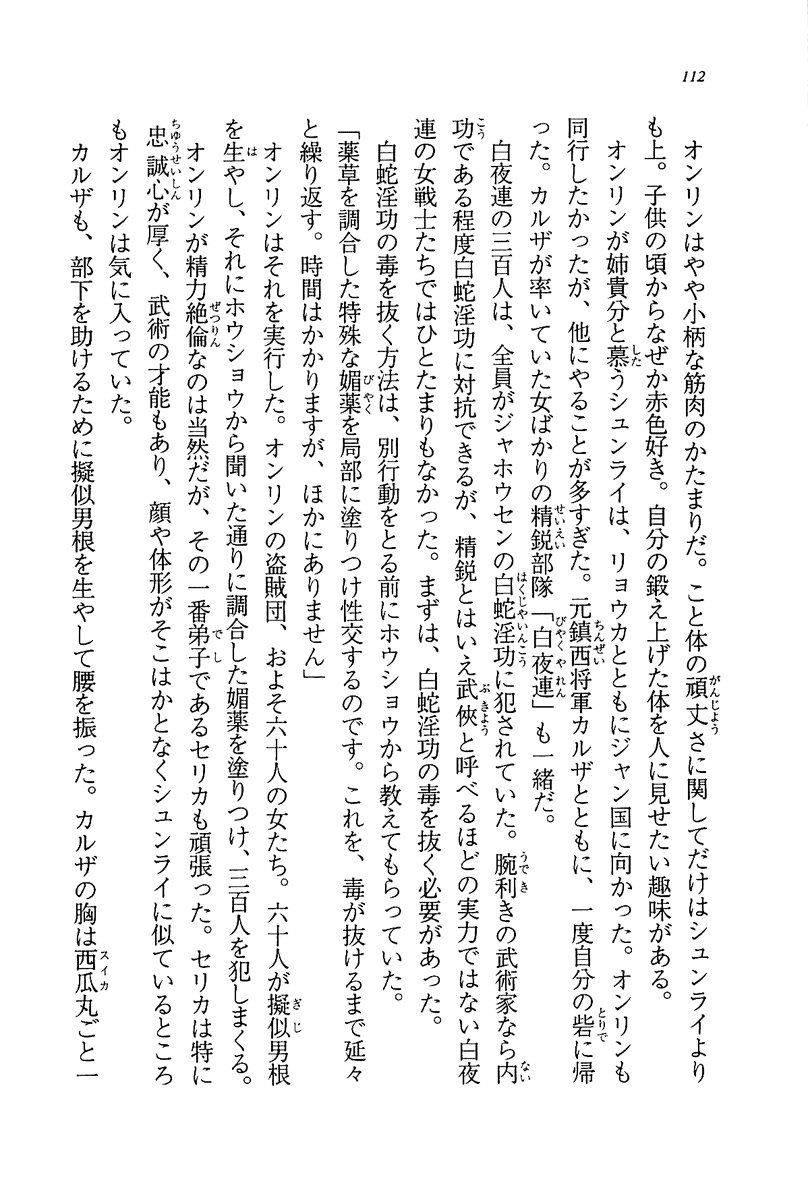 112
オンリンはやや小柄な筋肉のかたまりだ。こと体の頑丈さに関してだけはシュンライより
も上。子供の頃からなぜか赤色好き。自分の鍛え上げた体を人に見せたい趣味がある。
オンリンが姉貴分と慕うシュンライは、リョウカとともにジャン国に向かった。オンリンも
同行したかったが、他にやることが多すぎた。元鎮西将軍カルザとともに、一度自分の砦に帰
った。カルザが率いていた女ばかりの精鋭部隊「白夜連」も一緒だ。
白夜連の三百人は、全員がジャホウセンの白蛇淫功に犯されていた。腕利きの武術家なら内
功である程度白蛇淫功に対抗できるが、精鋭とはいえ武俠と呼べるほどの実力ではない白夜
連の女戦士たちではひとたまりもなかった。まずは、白蛇淫功の毒を抜く必要があった。
白蛇淫功の毒を抜く方法は、別行動をとる前にホウショウから教えてもらっていた。
「薬草を調合した特殊な媚薬を局部に塗りつけ性交するのです。これを、毒が抜けるまで延々
と繰り返す。時間はかかりますが、ほかにありません」
オンリンはそれを実行した。オンリンの盗賊団、およそ六十人の女たち。六十人が擬似男根
を生やし、それにホウショウから聞いた通りに調合した媚薬を塗りつけ、三百人を犯しまくる。
オンリンが精力絶倫なのは当然だが、その一番弟子であるセリカも頑張った。セリカは特に
忠誠心が厚く、武術の才能もあり、顔や体形がそこはかとなくシュンライに似ているところ
もオンリンは気に入っていた。
カルザも、部下を助けるために擬似男根を生やして腰を振った。カルザの胸は西瓜丸ごと一